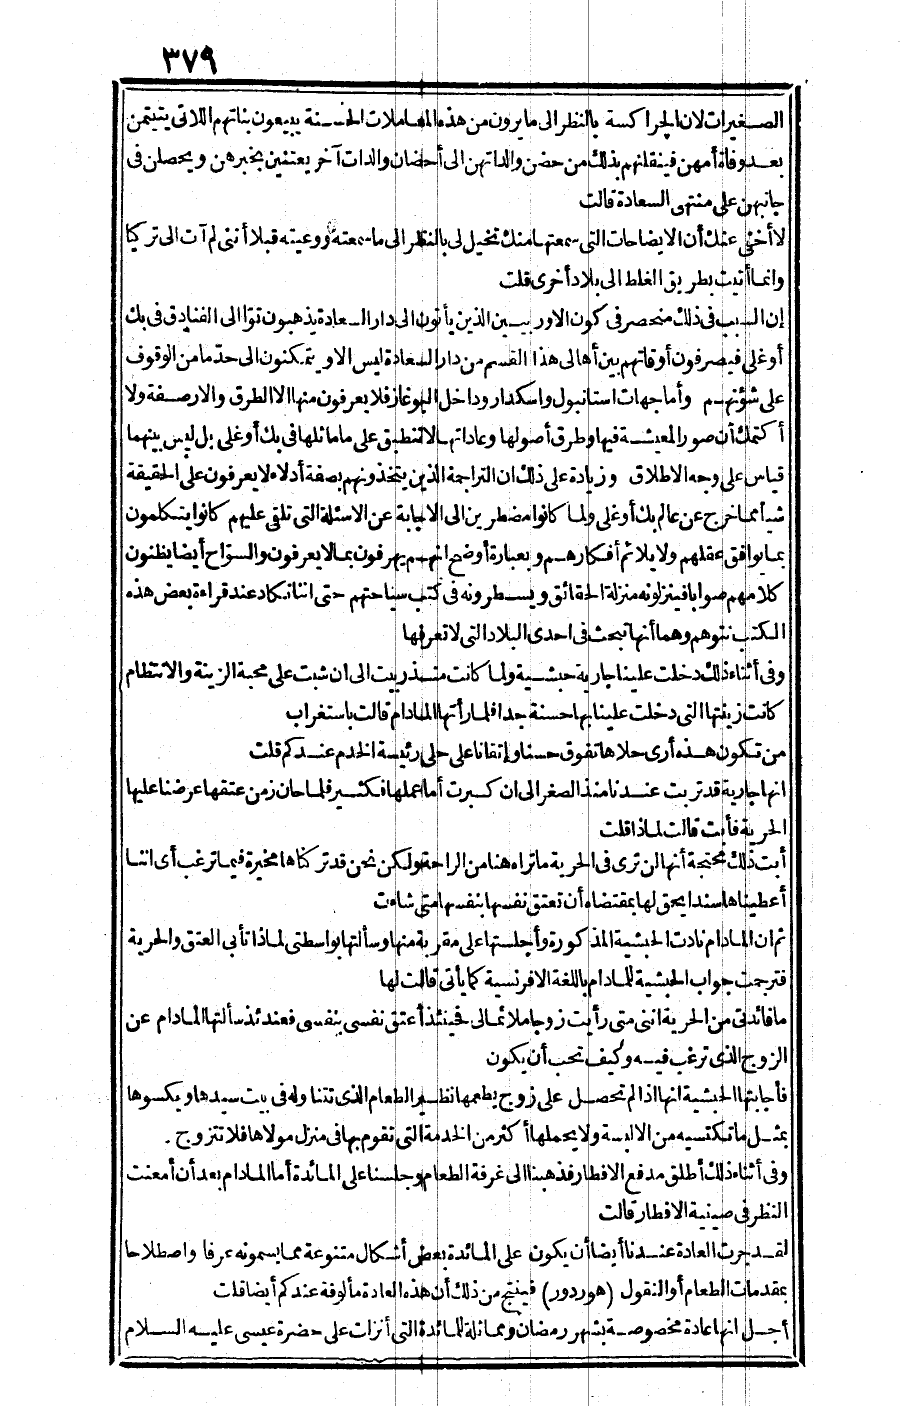 ٣٧٩
الصغيرات لان الجراكسة بالنظر الى ما يرون من هذه المعاملات الحسنة يبيعون بناتهم اللاتى يتيتمن
بعد وفاة أمهن فينقلنهم بذلك من حضن والداتهن الى أحضان والدات آخر يعتنين بخيرهن ويحصلن فى
جانبهن على منتهى السعادة قالت
لا أخفى عنك أن الايضاحات التى سمعتها منك تخيل لى بالنظر الى ما سمعته ووعيته قبلا أننى لم آت الى تركيا
وانما أتيت بطريق الغلط الى بلاد أخرى قلت
إن السبب فى ذلك منحصر فى كون الاوربيين الذين يأتون الى دار السعادة يذهبون توّا الى الفنادق فى بك
أوغلى فيصرفون أوقاتهم بين أهالى هذا القسم من دار السعادة ليس الا ويتمكنون الى حدّ ما من الوقوف
على شؤنهم وأما جهات استانبول واسكدار وداخل البوغاز فلا يعرفون منها الا الطرق والارصفة ولا
أكتمك أن صور المعيشة فيها وطرق أصولها وعاداتها لا تنطبق على ما ماثلها فى بك أوغلى بل ليس بينهما
قياس على وجه الاطلاق وزيادة على ذلك ان التراجمة الذين يتخذونهم بصفة أدلاء لا يعرفون على الحقيقة
شيأ مما خرج عن عالم بك أوغلى ولما كانوا مضطرين الى الاجابة عن الاسئلة التى تلقى عليهم كانوا يتكلمون
بما يوافق عقلهم ولا يلائم أفكارهم وبعبارة أوضح انهم يهرفون بما لا يعرفون والسوّاح أيضا يظنون
كلامهم صوابا فينزلونه منزلة الحقائق ويسطرونه فى كتب سياحتهم حتى اننا نكاد عند قراءة بعض هذه
الكتب نتوهم وهما أنها تبحث فى احدى البلاد التى لا تعرفها
وفى أثناء ذلك دخلت علينا جارية حبشية ولما كانت منذ ربيت الى ان شبت على محبة الزينة والانتظام
كانت زينتها التى دخلت علينا بها حسنة جدا فلما رأتها المادام قالت باستغراب
من تكون هذه أرى حلاها تفوق حسنا وإتقانا على حلى رئيسة الخدم عندكم قلت
انها جارية قد تربت عندنا منذ الصغر الى ان كبرت أما عملها فكثير فلما حان زمن عتقها عرضنا عليها
الحرية فأبت قالت لماذا قلت
أبت ذلك محتجة أنها لن ترى فى الحرية ما تراه هنا من الراحة ولكن نحن قد تركناها مخيرة فيما ترغب أى اننا
أعطيناها سندا يحق لها بمقتضاه أن تعتق نفسها بنفسها متى شاءت
ثم ان المادام نادت الحبشية المذكورة وأجلستها على مقربة منها وسألتها بواسطتى لماذا تأبى العتق والحرية
فترجمت جواب الحبشية للمادام باللغة الافرنسية كما يأتى قالت لها
ما فائدتى من الحرية اننى متى رأيت زوجا ملائما لى فحينئذ أعتق نفسى بنفسى فعندئذ سألتها المادام عن
الزوج الذى ترغب فيه وكيف تحب أن يكون
فأجابتها الحبشية انها اذا لم تحصل على زوج يطعمها نظير الطعام الذى تتناوله فى بيت سيدها ويكسوها
بمثل ما تكتسيه من الالبسة ولا يحملها أكثر من الخدمة التى تقوم بها فى منزل مولاها فلا تتزوج .
وفى أثناء ذلك أطلق مدفع الافطار فذهبنا الى غرفة الطعام وجلسنا على المائدة أما المادام بعد أن أمعنت
النظر فى صينية الافطار قالت
لقد جرت العادة عندنا أيضا أن يكون على المائدة بعض أشكال متنوعة مما يسمونه عرفا واصطلاحا
بمقدمات الطعام أو النقول (هوردور) فينتج من ذلك أن هذه العادة مألوفة عندكم أيضا قلت
أجل انها عادة مخصوصة بشهر رمضان ومماثلة للمائدة التى أنزلت على حضرة عيسى عليه السلام